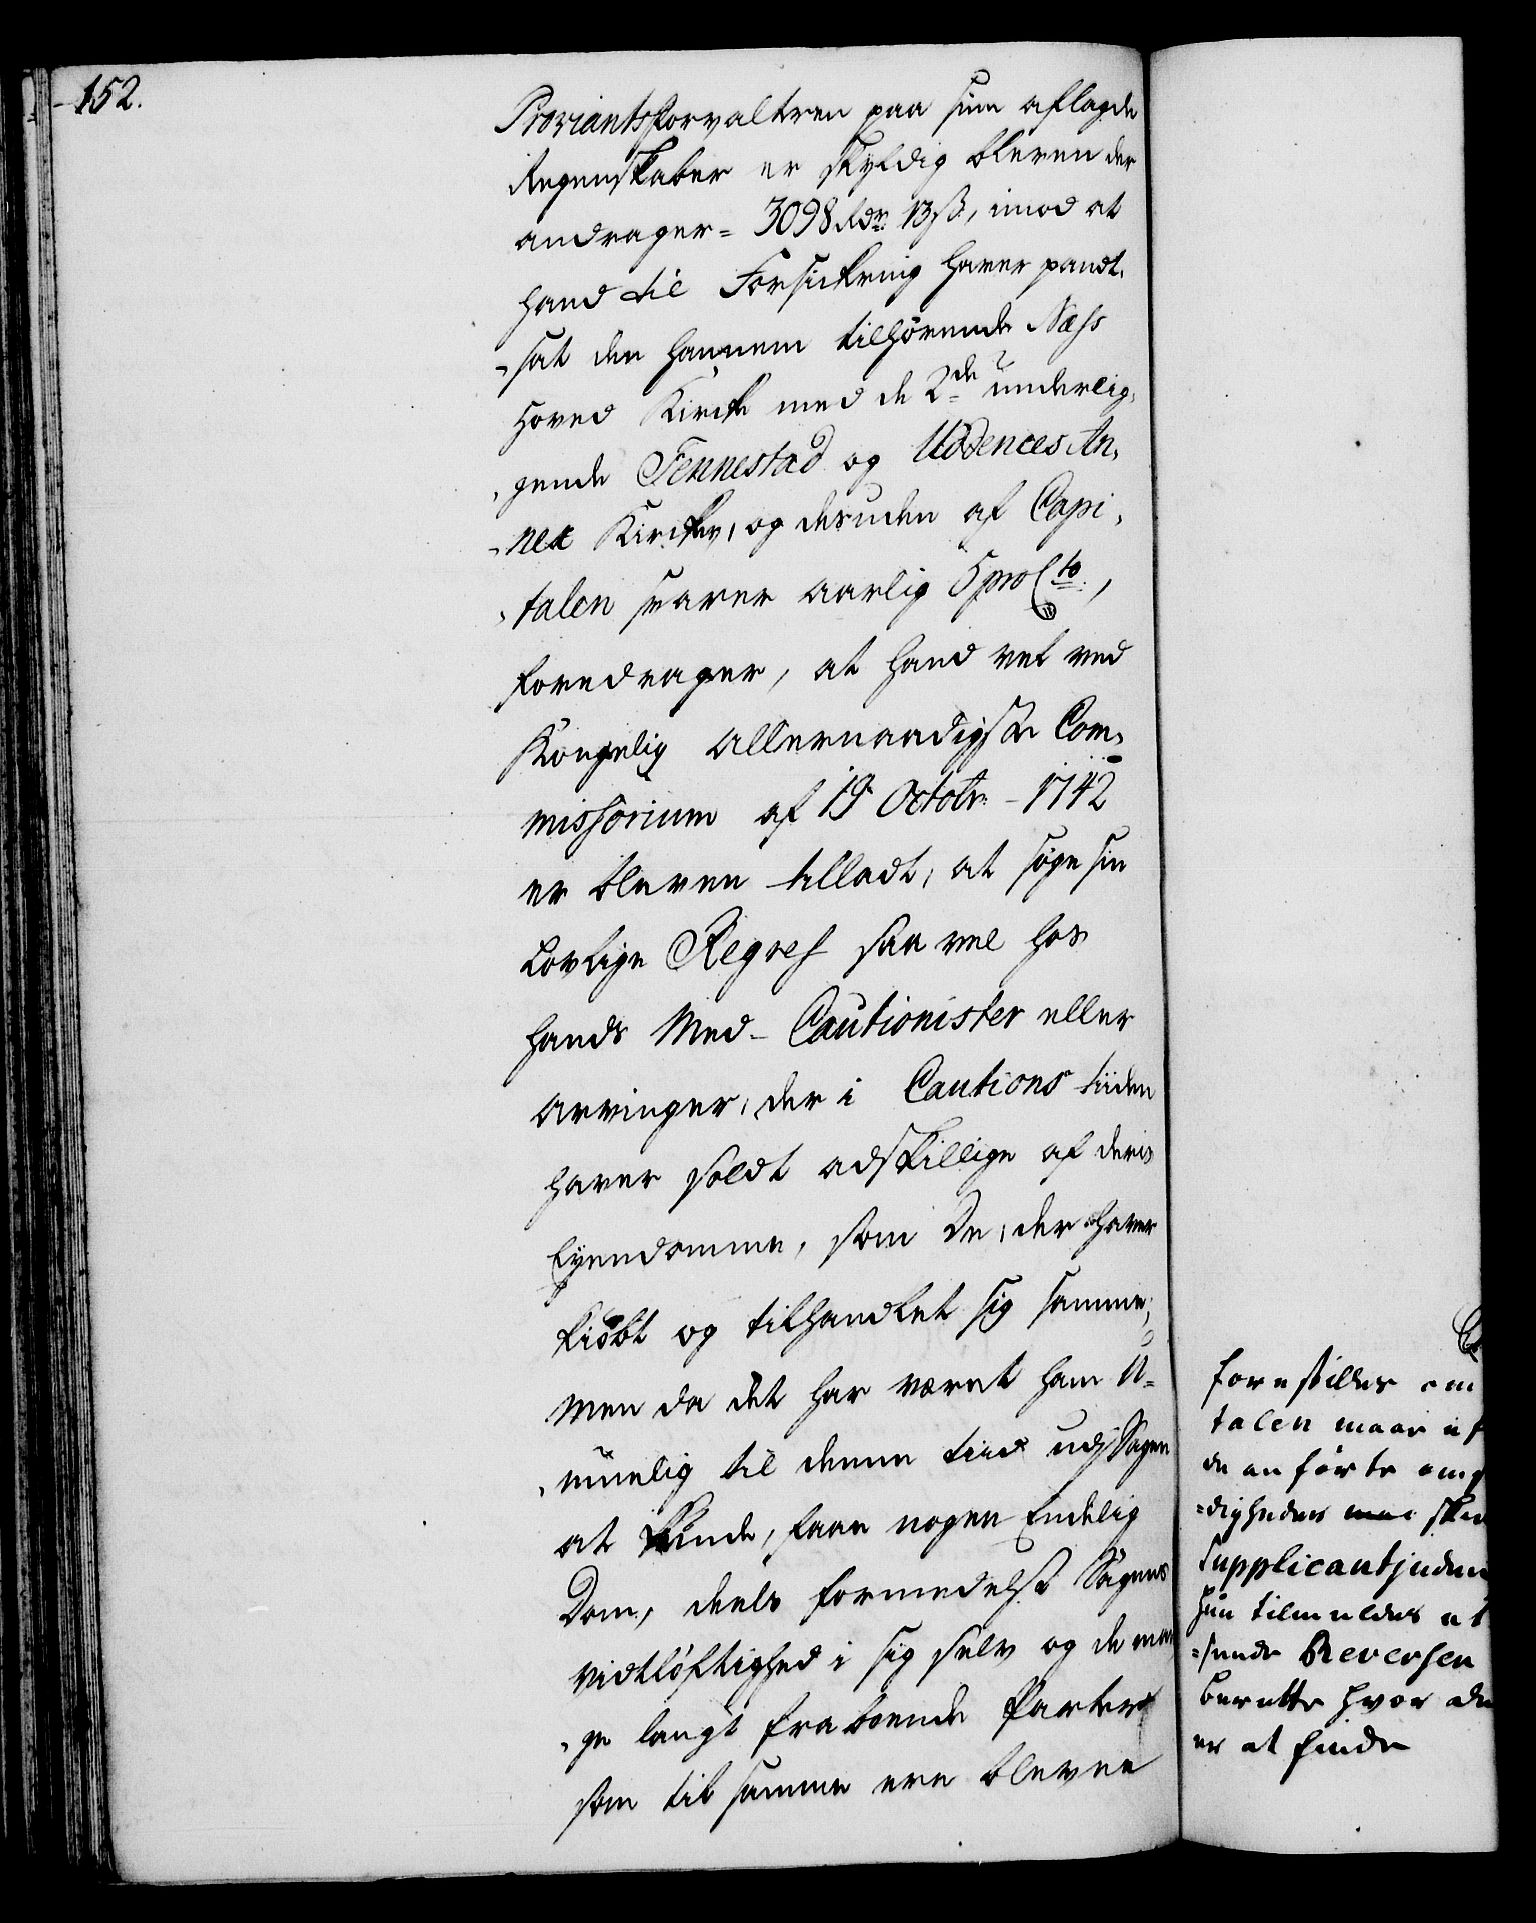 152.
Proviantsforvalteren paa sine aflagde
Regenskaber er skyldig bleven der
andrager = 3098 Rdr. 13 ß, imod at
hand til Forsickring haver pandt,
-sat den hannem tilhørende Næss
Hoved Kircke med de 2de underlig,
,gende Tennestad og Uddences An,
-nex Kircker, og desuden af Capi,
,talen svarer aarlig 5 pro Cto,
foredrager, at hand vel ved
Kongelig allernaadigste Com,
missorium af 19 Octobr. - 1742
er bleven tilladt, at søge sin
Lovlige Regress saa vel hos
hands Med- Cautionister eller
arvinger, der i Cautions tiiden
haver soldt adskillige af deris
Eyendomme, som De, der haver
kiøbt og tilhandlet sig samme,
Men da det har været ham U-
,muelig til denne tiid udj Sagen
at kunde, faae nogen Endelig
Dom, deels formedelst Sagens
vidtløftighed i sig selv og de man
,ge langt fra boende Parter
som til samme ere blevne
forestilles om
talen maae af
de anførte omst
-digheder skee
Supplicant
hun tilmeldes at
-sende Reversen
berette hvor de
er at finde